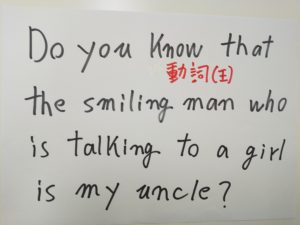 Do you know that
動詞(主)
the smiling man who
is talking to a girl
is my uncle?